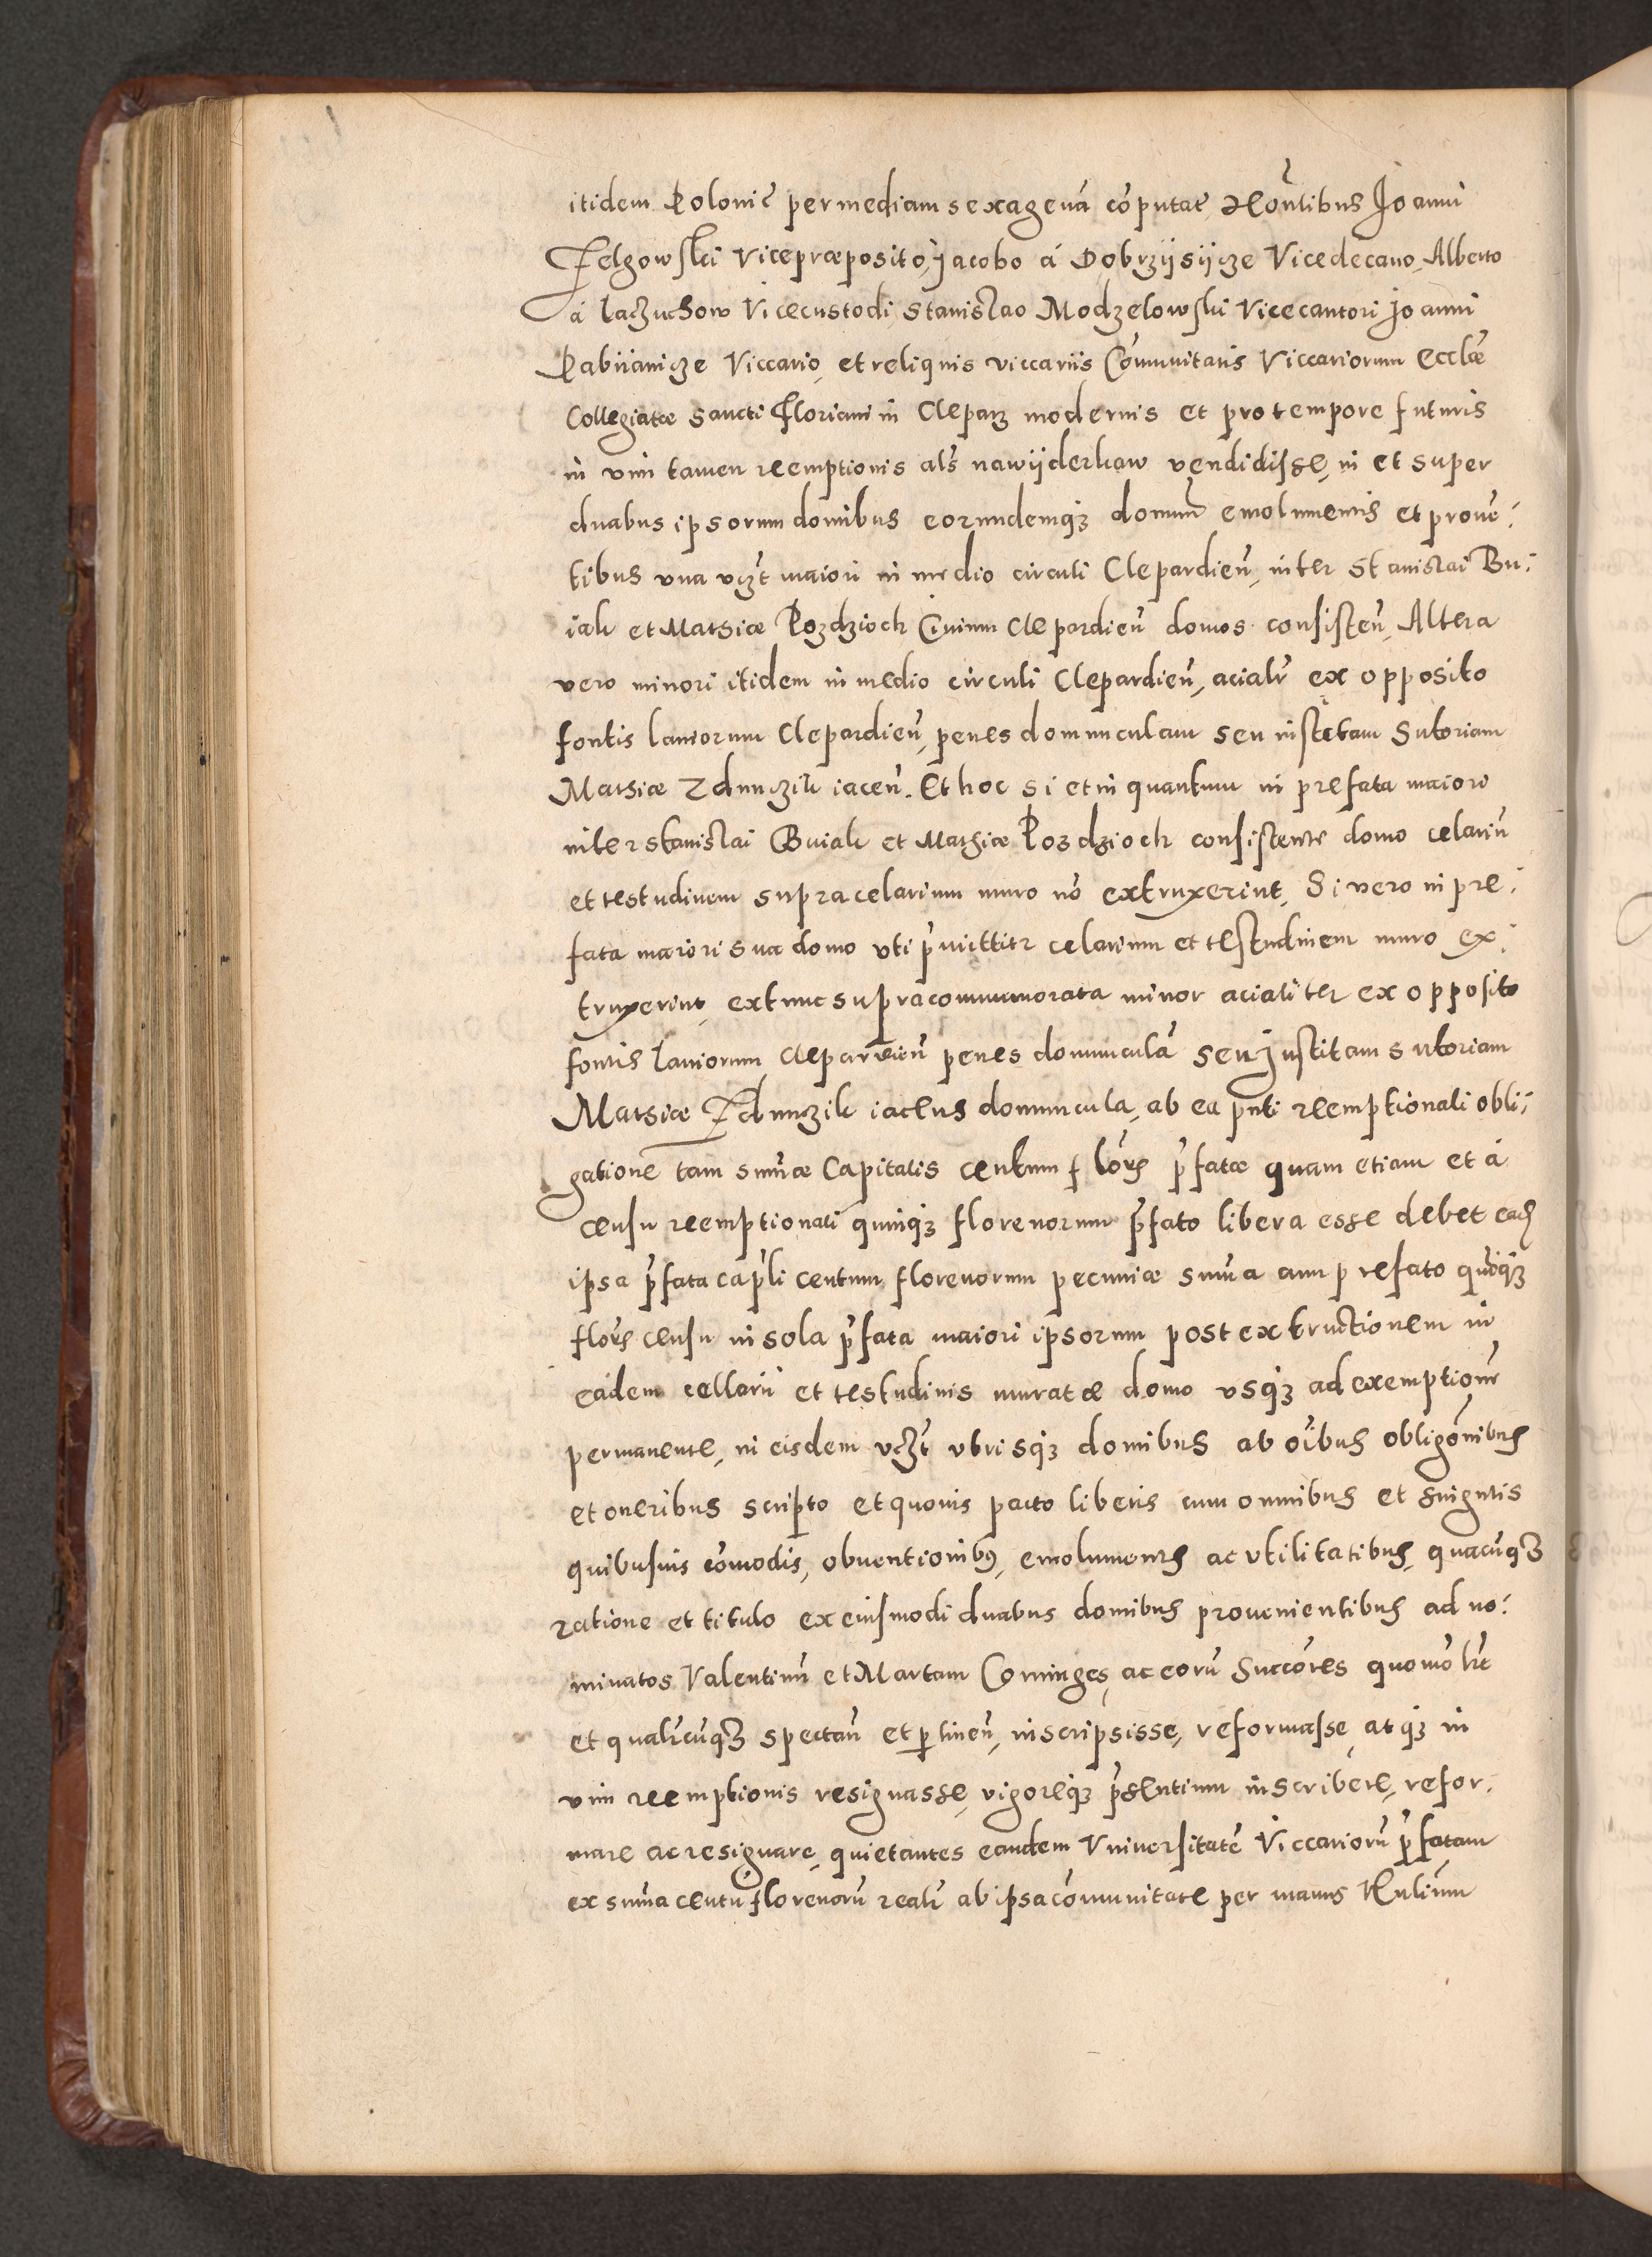 itidem Polonic̄ per mediam sexagenā cōputat̄ Honlibus Joanni
Zelgowski Vicepræposito, Jacobo á Dobrzijsijcze Vicedecano, Alberto
á Laczuchow Vicecustodi, Stanislao Modzelowski Vicecantori Joanni
Pabiianicze Viccario, et reliquis viccariis Cōmunitatis Viccariorum Ecclæ
Collegiatæ Sancti Floriani in Clepar̄z modernis et pro tempore futuris
in vim tamen reemptionis als nawijderkaw vendidisse, in et super
duabus ipsorum domibus eorundemqȝ domuū emolumentis et proue-
tibus vna vczt maiori in medio circuli Clepardien̄, inter Stanislai Bu-
iak et Mathiæ Pozdzioch Ciuium Clepardien̄ domos consisten̄, Altera
vero minori itidem in medio circuli Clepardien̄, acialr̄ ex opposito
fontis laniorum Clepardien̄, penes domunculam seu institam Sutoriam
Mathiæ Zdunczik iacen̄. Et hoc si et in quantum in prefata maiori
inter Stanislai Buiak et Mathiæ Pozdzioch consistente domo celariū
et testudinem supra celarium muro nō extruxerint, Si vero in pre-
fata maiori sua domo vti p̄mittitr celarium et testudinem muro ex-
truxerint, extunc supracommemorata minor acialiter ex opposito
fontis laniorum Clepardien̄ penes domunculā seu Institam sutoriam
Mathiæ Zdunczik iacens domuncula, ab ea p̄nti reemptionali obli-
gatione tam sum̄æ Capitalis centum flor̄ p̄fatæ quam etiam et á
censu reemptionali quinqȝ florenorum p̄fato libera esse debet eadē
ipsa p̄fata cap̄li centum florenorum pecuniæ sum̄a cum prefato quīqȝ
flor̄ censu in sola p̄fata maiori ipsorum post extructionem in
eadem cellarii et testudinis muratæ domo vsqȝ ad exemptionē
permanente, in eisdem vczt vtrisqȝ domibus ab oībus obligōnibus
et oneribus scripto et quouis pacto liberis cum omnibus et singulis
quibusuis cōmodis, obuentionibȝ, emolumentis ac vtilitatibus, quacūqȝ
ratione et titulo ex eiusmodi duabus domibus prouenientibus ad no-
minatos Valentinū et Martam Coninges, ac eorū Succōres quomōlt
et qualr̄cūqȝ spectan̄ et ptinen̄, inscripsisse, reformasse, atqȝ in
vim reemptionis resignasse, vigoreqȝ p̄sentium inscribere, refor-
mare ac resignare, quietantes eandem Vniuersitatē Viccariorū p̄fatam
ex sum̄a centū florenorū realr̄ ab ipsa cōmunitate per manus Hnlium